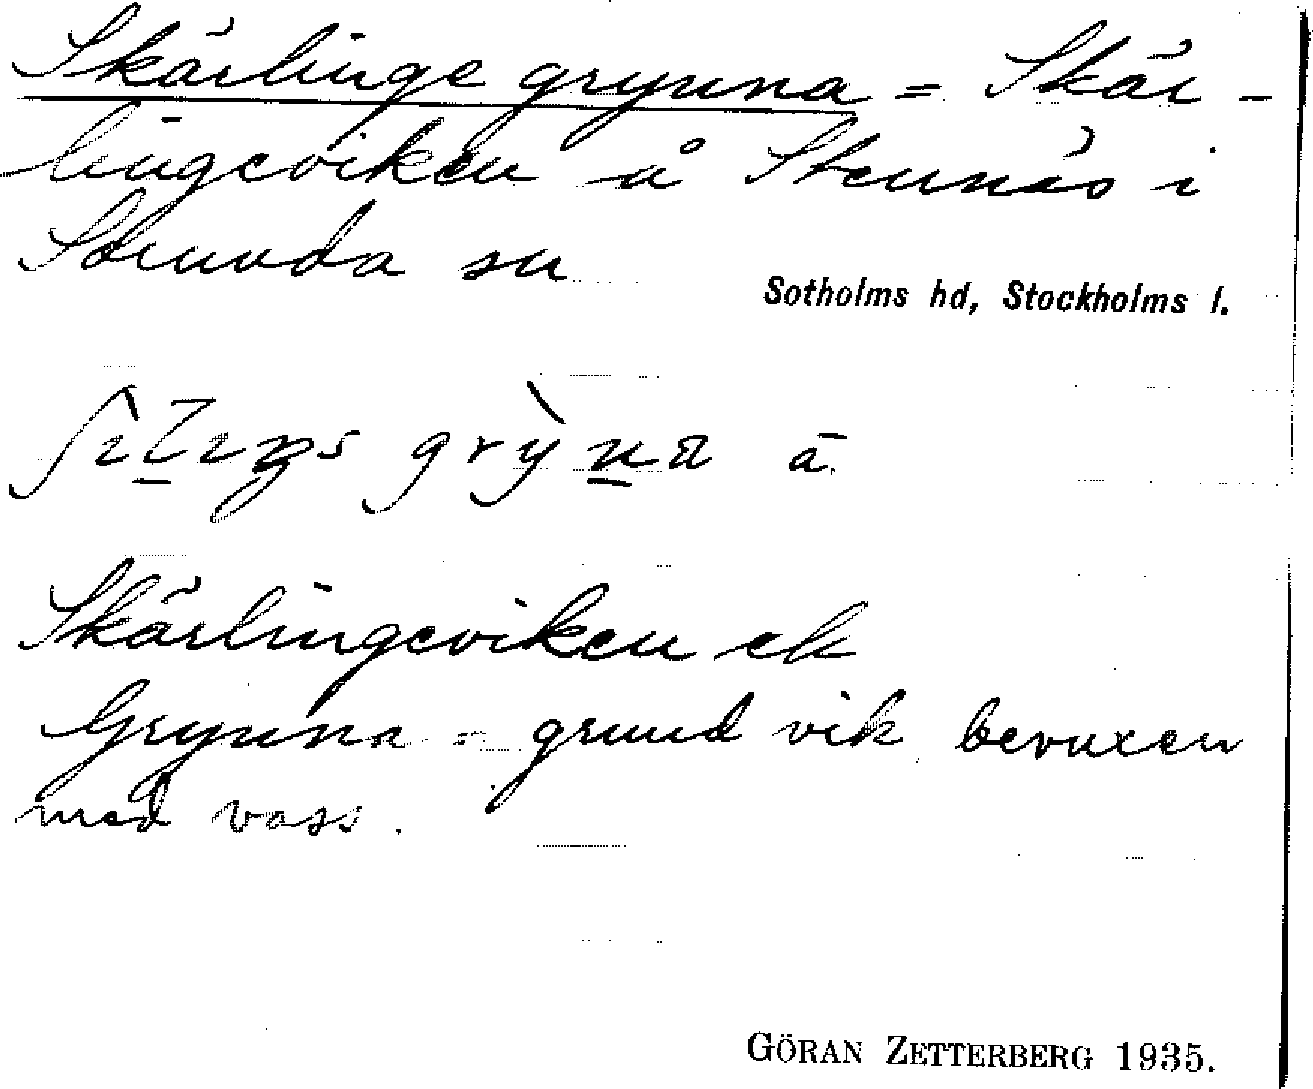 Skärlinge grynna = Skär-
lingeviken å Stennäs i
Sorunda sn
Sotholms hd, Stockholms l.
grỳna ā.
Skärlingeviken ek
Grynna = grund vik bevuxen
med vass.
GÖRAN ZETTERBERG 1935.